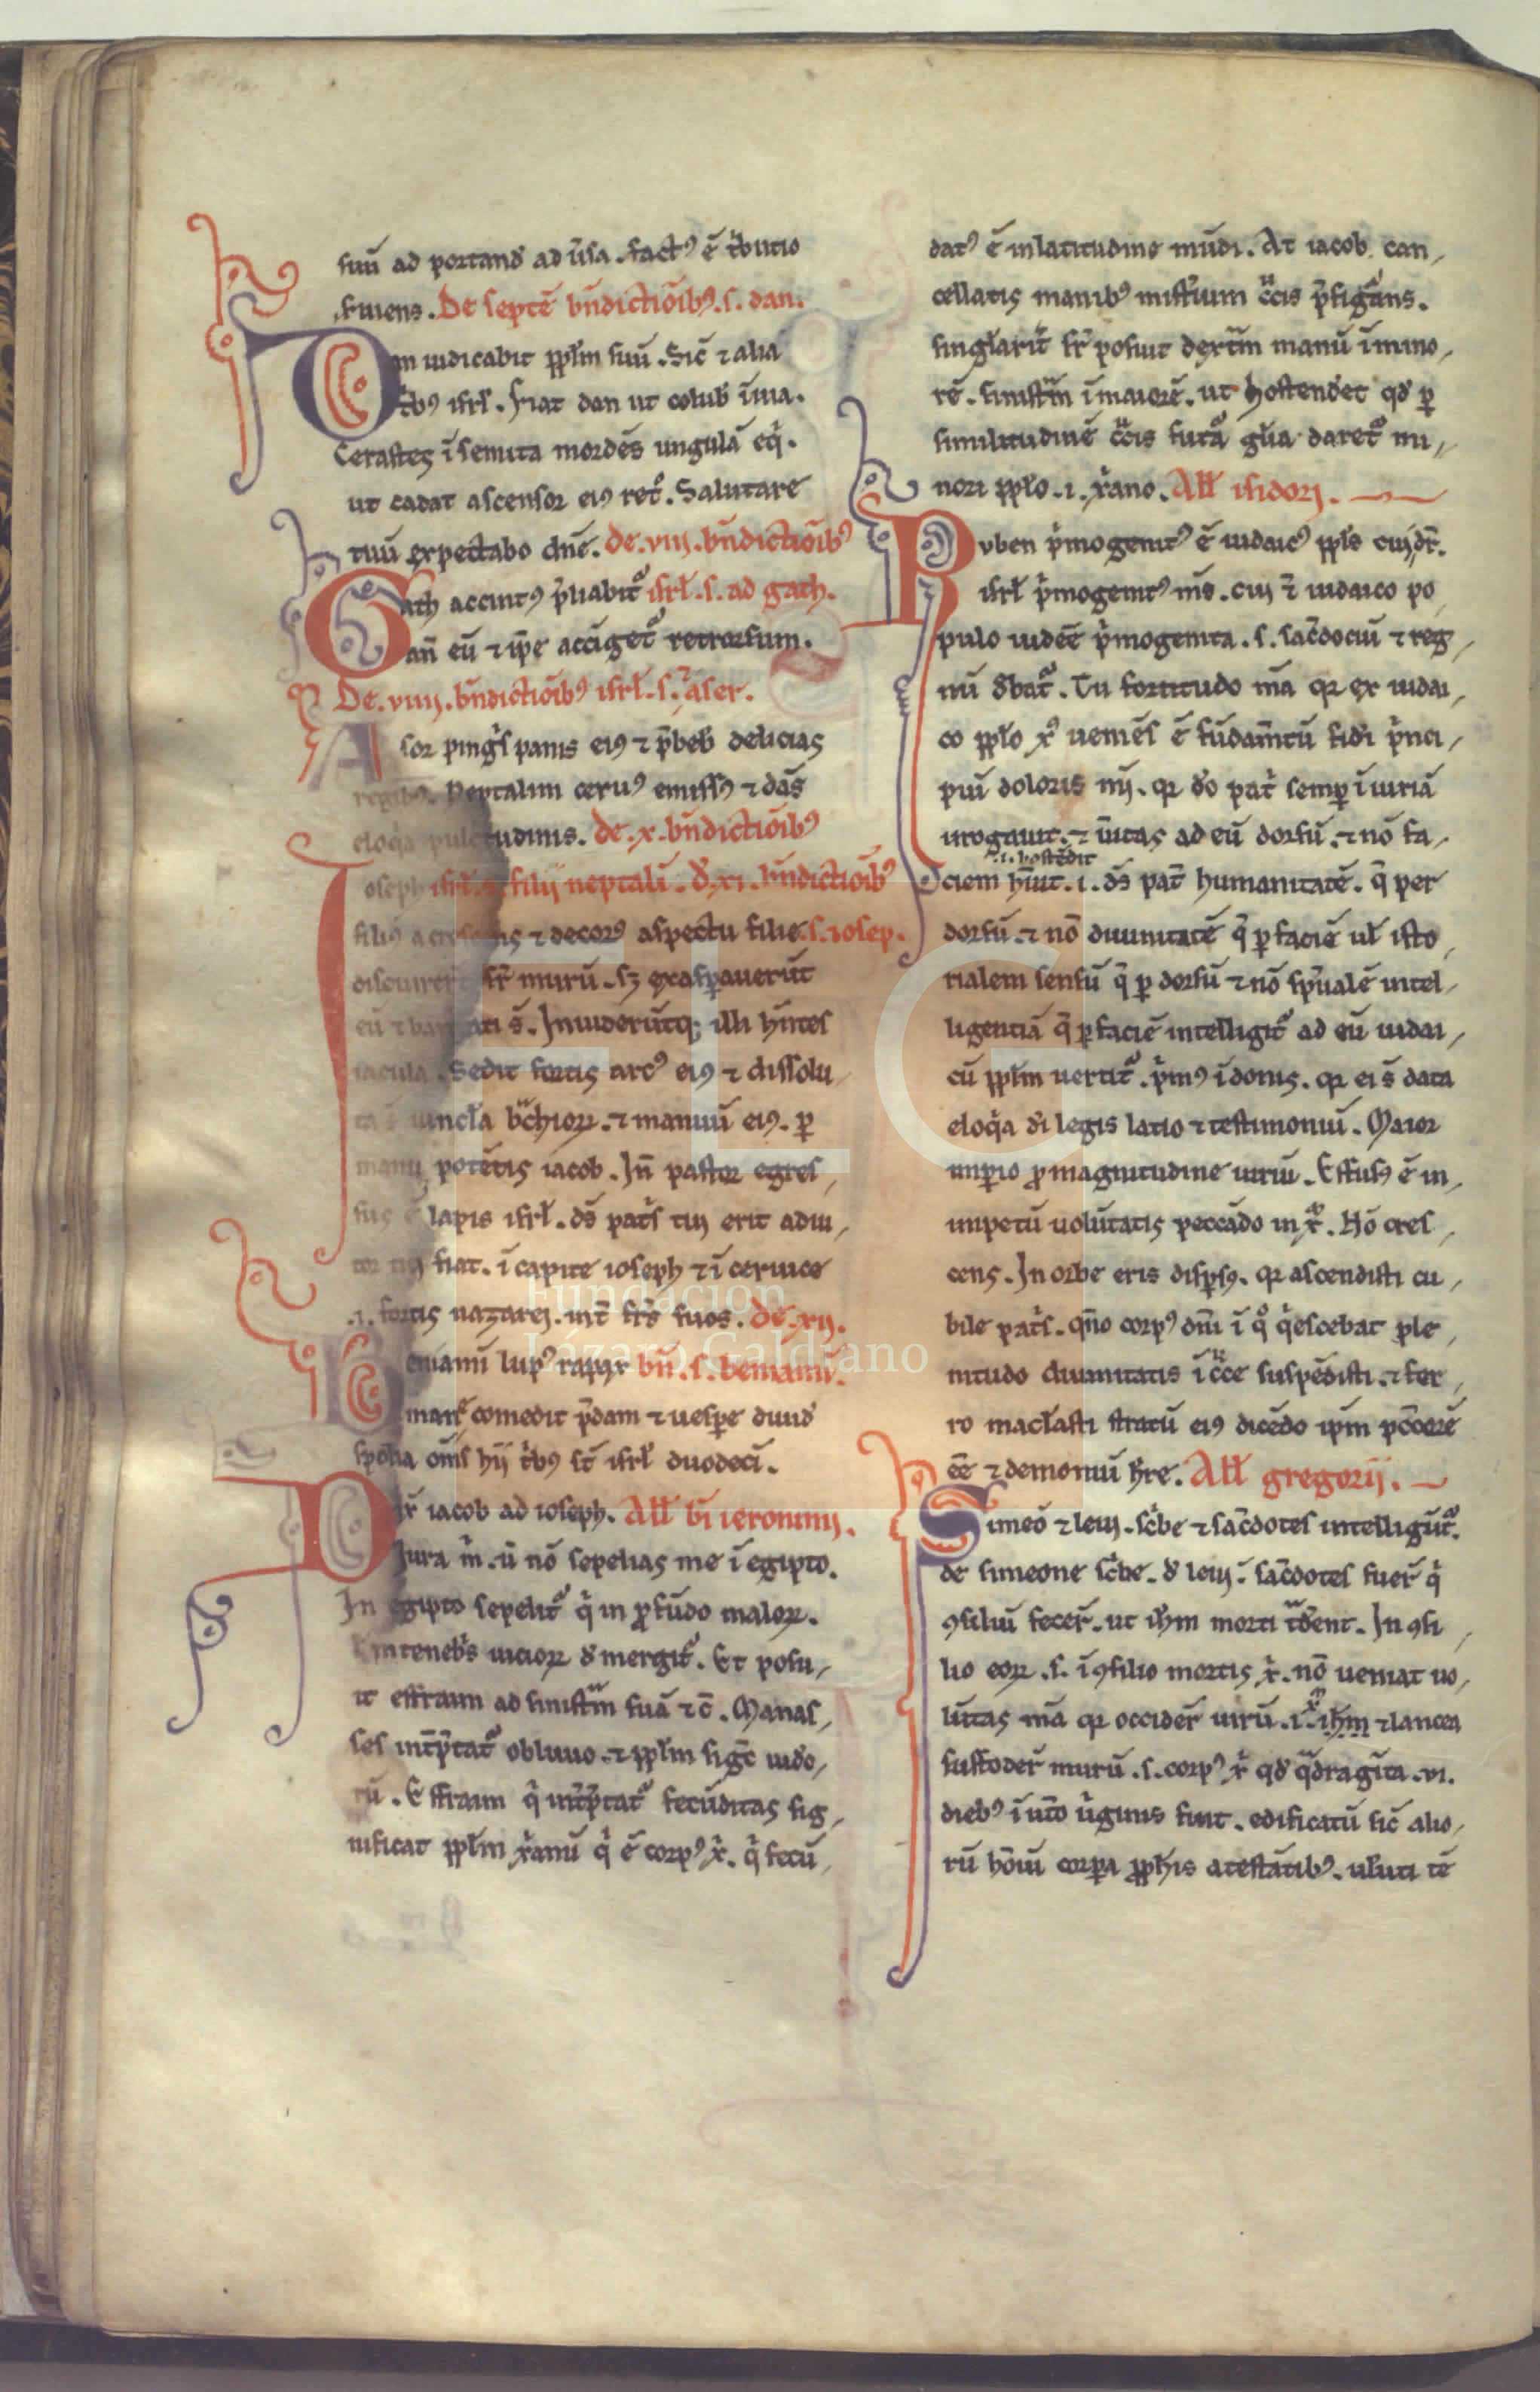 suũ ad portand̾ ad ũsa. fact᷒ ẽ t̾butio
.s̾uiens. De septẽ bñdictiõib᷒. s. dan.
Dan iudicabit pp̃lm suũ. Sic̃ ⁊ alia
t̾b᷒ isrł. Fiat dan ut colub̾ ĩ uia.
Cerastes ĩ semita mordẽs ungulã eq̾.
ut cadat ascensor ei᷒ ret̾. Salutare
tuũ expectabo dñe. de. viii. bñdictiõib᷒
Gath accint᷒ p̾liabit᷑ isrł. s. ad gath.
añ eũ ⁊ ip̃e accĩget᷑ retrorsum.
De. viiii. bñdictiõib᷒ isrł. s. aser.
Asor ping̾s panis ei᷒ ⁊ p̃beb̾ delicias
regib᷒. Neptalim ceru᷒ emiss᷒ ⁊ dãs
eloq̾a pulc̾tudinis. de. x. bñdictiõib᷒
Ioseph isrł. s. filij neptali. d̾. xi. bñdictiõib᷒
fili᷒ accrescens ⁊ decor᷒ aspectu filie s. iosep.
discurrer̃t sr̃ murũ. sꝫ exasꝑauerũt
eũ ⁊ iurgati s̃. Inuiderũtq; illi hñtes
iacula. Sedit fortis arc᷒ ei᷒ ⁊ dissolu
ta s̃ uincła b̾chioꝝ. ⁊ manuũ ei᷒. ꝑ
manũ potẽtis iacob. Iñ pastor egres
sus ẽ lapis isrł. ds̃ pat̾s tui erit adiu
tor tu᷒ fiat. ĩ capite ioseph ⁊ ĩ ceruice
.i. fortis nazarej. int̃ fr̃s suos. de. xii.
Beniamĩ lup᷒ rapax bñ. s. beniamĩ.
mane comedit p̃dam ⁊ uesꝑe diuid̾
spolia oms̃ hij t̾b᷒ st̃ isrł duodeci.
Dix̃ iacob ad ioseph. Ałł bĩ ieronimi.
Iura m̾. ũ nõ sepelias me ĩ egipto.
In egipto sepelit᷑ q̾ in ꝓfũdo maloꝝ.
⁊ in teneb̾s uicioꝝ d̾mergit᷑. Et posu
it effraim ad sinist̾m suã ⁊c̃. Manas
ses int̾p̃tat᷑ obliuio. ⁊ pp̃lm sig̾t iud̾o
rũ. Effraim q̾ int̾p̃tat᷑ fecũditas sig
nificat pp̃lm xp̃anũ q̾ ẽ corp᷒ x̾. q̾ fecũ
dat᷒ ẽ in latitudine mũdi. At iacob. can
cellatis manib᷒ mist̾ium c̾cis p̃figurans.
singlarit̾ sr̃ posuit dext̾m manũ ĩ mino
rẽ. sinist̾m ĩ maiorẽ. ut hostender̃t qd̾ ꝑ
similitudinẽ c̾cis futa̾ gr̃a daret᷑ mi
nori pp̃lo. i. x̾ano. Ałł isidorj.
Ruben p̾mogenit᷒ ẽ iudaic᷒ pp̃ls cuj dr̃.
isrł p̾mogenit᷒ ms̃. cui ⁊ iudaico po
pulo iudeẽ p̾mogenita. s. sac̃dociũ ⁊ reg
nũ d̾bat᷑. Tu fortitudo m̃a qꝛ ex iudai
co pp̃lo x᷒ ueniẽs ẽ fũdam̃tũ fid̾i p̾nci
piũ doloris mj. qꝛ d̾o pat̾ semꝑ ĩiuriã
irrogauit. ⁊ ũtas ad eũ dorsũ. ⁊ nõ fa
.i. hostẽdit
ciem hñuit. i. ds̃ pat̾ humanitatẽ. q̃ per
dorsũ. ⁊ nõ diuinitatẽ q̃ ꝑ faciẽ uł isto
rialem sensũ q̃ ꝑ dorsũ ⁊ nõ sp̃ualẽ intel
ligentiã q̃ ꝑ faciẽ intelligit᷑ ad eũ iudai
cũ pp̃lm uertit᷑. p̾m᷒ ĩ donis. qꝛ ei s̃ data
eloq̾a d̾i legis latio ⁊ testimoniũ. Maior
imꝑio ꝓ magnitudine uiriũ. Effus᷒ ẽ in
impetũ uolũtatis peccãdo in x̾. Nõ cres
cens. In orbe eris disꝑs᷒. qꝛ ascendisti cu
bile pat̾s. qño corp᷒ dñi ĩ q᷒ q̾escebat ple
nitudo diuinitatis ĩ c̾ce suspẽdisti. ⁊ fer
ro macłasti stratũ ei᷒ dicẽdo ip̃m pc̃corẽ
eẽ ⁊ demoniũ h̾re. Ałł gregorij.
Simeõ ⁊ leuj. sc̾be ⁊ sac̃dotes intelligũt᷑.
de simeone sc̾be. d̾ leuj. sac̃dotes fuer̃ q̾
ꝯsiliũ fecer̃. ut ih̃m morti t̾derent. In ꝯsi
lio eoꝝ. s. ĩ ꝯsilio mortis x̾. nõ ueniat uo
lũtas m̃a qꝛ occider̃ uirũ. i. x̾m ih̃m ⁊ lancea
suffoder̃ murũ. s. corp᷒ x̾ qd̾ q̾dragĩta. vi.
dieb᷒ ĩ ut̾o ũginis fuit. edificatũ sic̃ alio
rũ hõiũ corpa ꝓph̃is atestãtib᷒. uluti tẽ